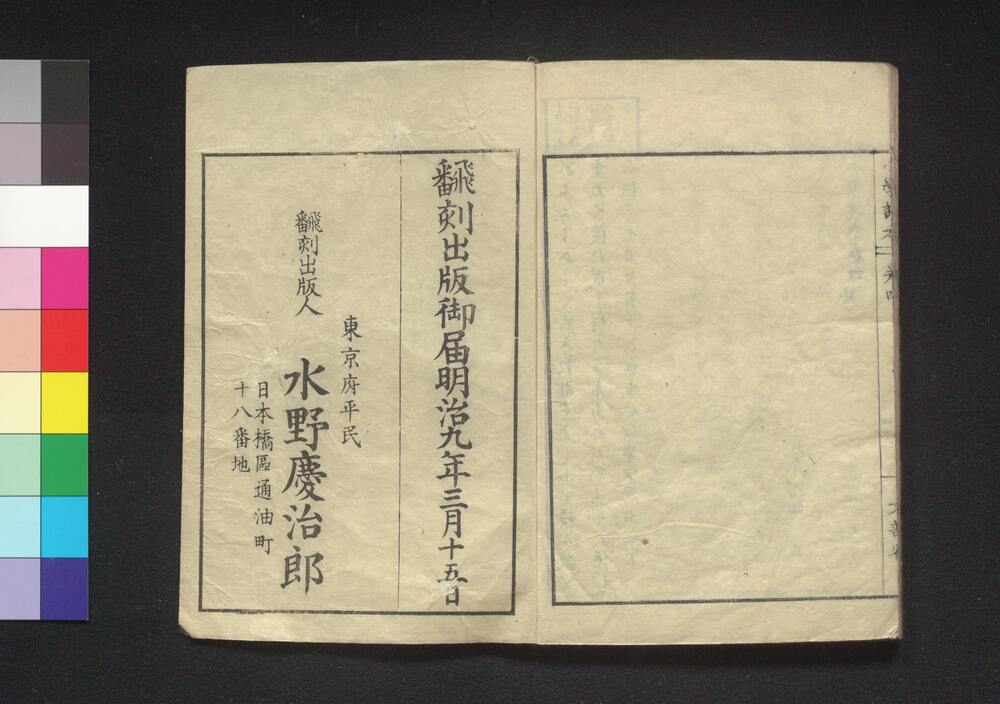 小學讀本 卷四
文部省
飜刻出版御届明治九年三月十五日
東京府平民
飜刻出版人 水野慶治郎
日本橋區通油町
十八番地